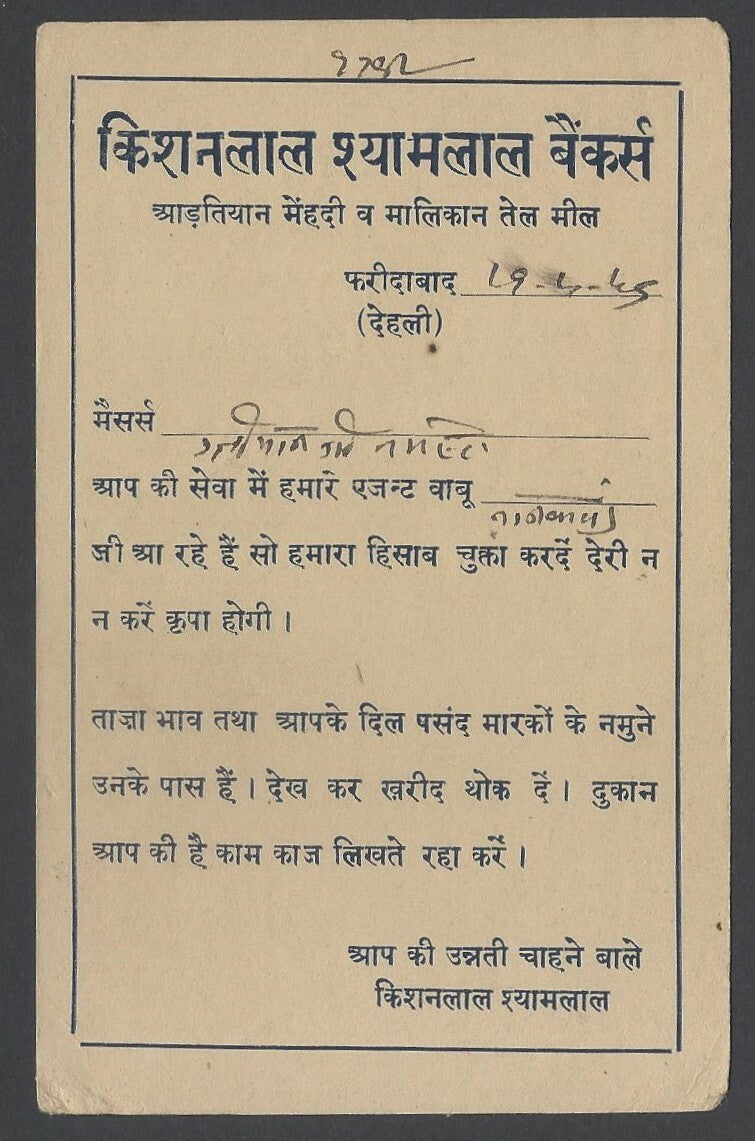 किशनलाल श्यामलाल बैंकर्स
आड़तियान मेंहदी व मालिकान तेल मील
फरीदाबाद
(देहली)
मैसर्स
आप की सेवा में हमारे एजन्ट वाबू
जी आ रहे हैं सो हमारा हिसाब चुक्ता करदें देरी न
न करें कृपा होगी ।
ताज़ा भाव तथा आपके दिल पसंद मारकों के नमुने
उनके पास हैं । देख कर खरीद थोक दें । दुकान
आप की है काम काज लिखते रहा करें ।
आप की उन्नती चाहने बाले
किशनलाल श्यामलाल